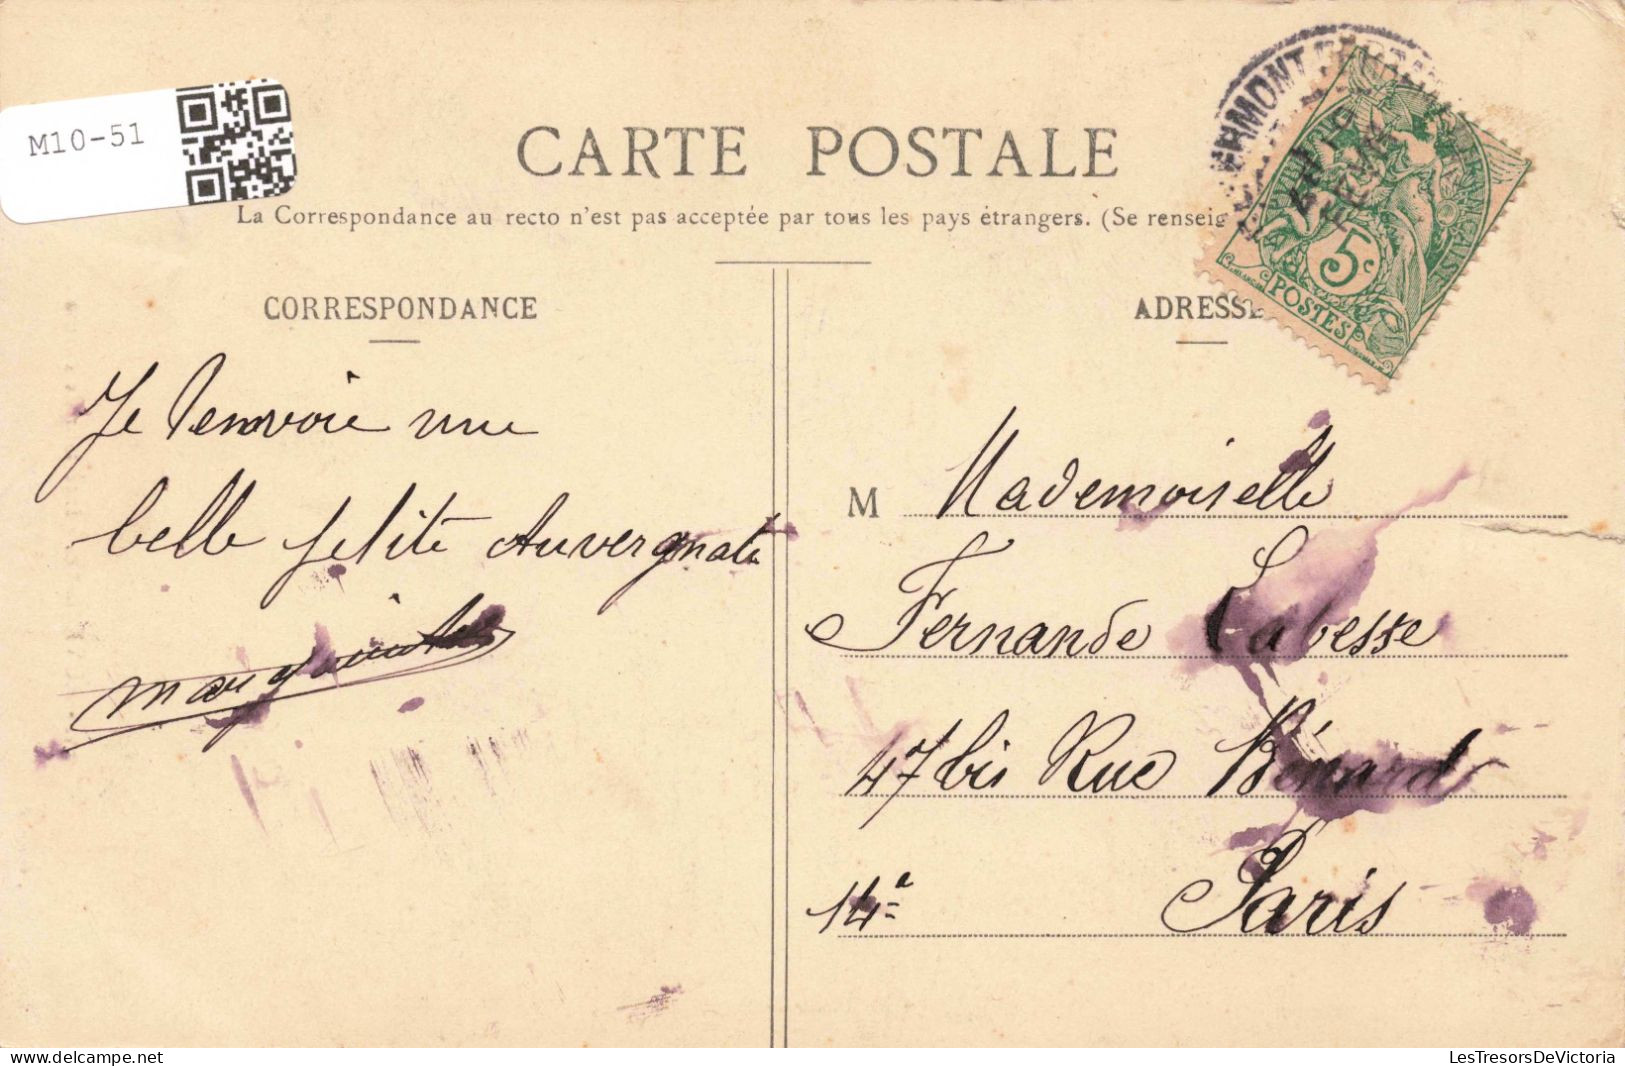 M10-51
CARTE POSTALE
La Correspondance au recto n'est pas acceptée par tous les pays étrangers. (Se renseig
CORRESPONDANCE
ADRESSE
5c
POSTES
Je t'envoie une
belle petite Auvergnate
M Mademoiselle
Fernande Labesse
47 bis Rue Bénard
14e Paris
delcampe.net
LesTresorsDeVictoria